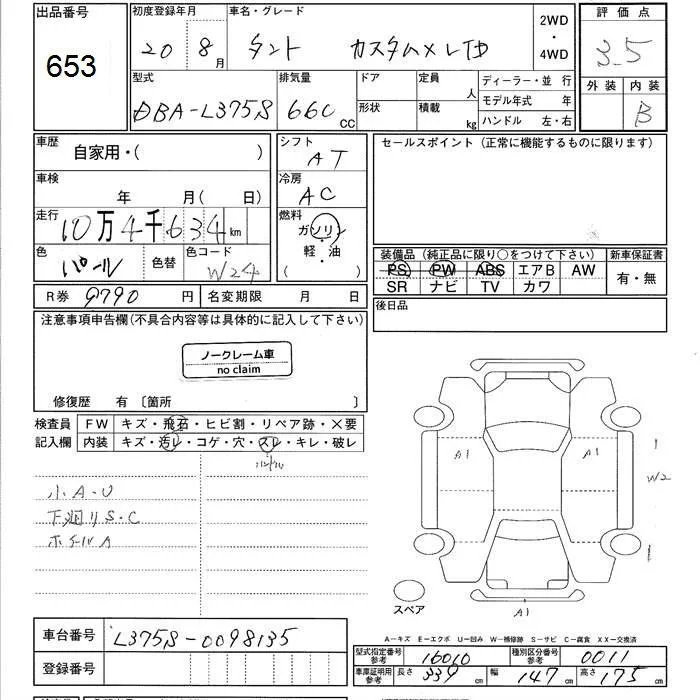 出品番号 初度登録年月 車名・グレード 2WD・4WD 評価点
653 20年 8月 タント カスタムメレTD 3.5
外装 内装 B
型式 排気量 ドア 定員 人 ディーラー・並行
DBA-L375S 660cc 形状 積載 kg モデル年式 年
ハンドル 左・右
車歴 自家用・( ) シフト AT
車検 年 月(日) 冷房 AC
走行 10万4千634km 燃料 ガソリン 軽・油 ( )
色 パール 色替 色コード W24
R券 9790円 名変期限 月 日
セールスポイント(正常に機能するものに限ります)
装備品(純正品に限り○をつけて下さい) 新車保証書
PS PW ABS エアB AW 有・無
SR ナビ TV カワ
後日品
注意事項申告欄(不具合内容等は具体的に記入して下さい)
ノークレーム車
no claim
修復歴 有〔箇所 〕
検査員 FW キズ・飛石・ヒビ割・リペア跡・×要
記入欄 内装 キズ・汚レ・コゲ・穴・スレ・キレ・破レ
ハンドル
小A・U
下廻りS・C
ホイールA
A1 A1 W2
A1
スペア
A―キズ E―エクボ U―凹み W―補修跡 S―サビ C―腐食 XX―交換済
車台番号 L375S-0098135
登録番号
型式指定番号 参考 16010 種別区分番号 参考 0011
車庫証明用 参考 長さ 339cm 幅 147cm 高さ 175cm